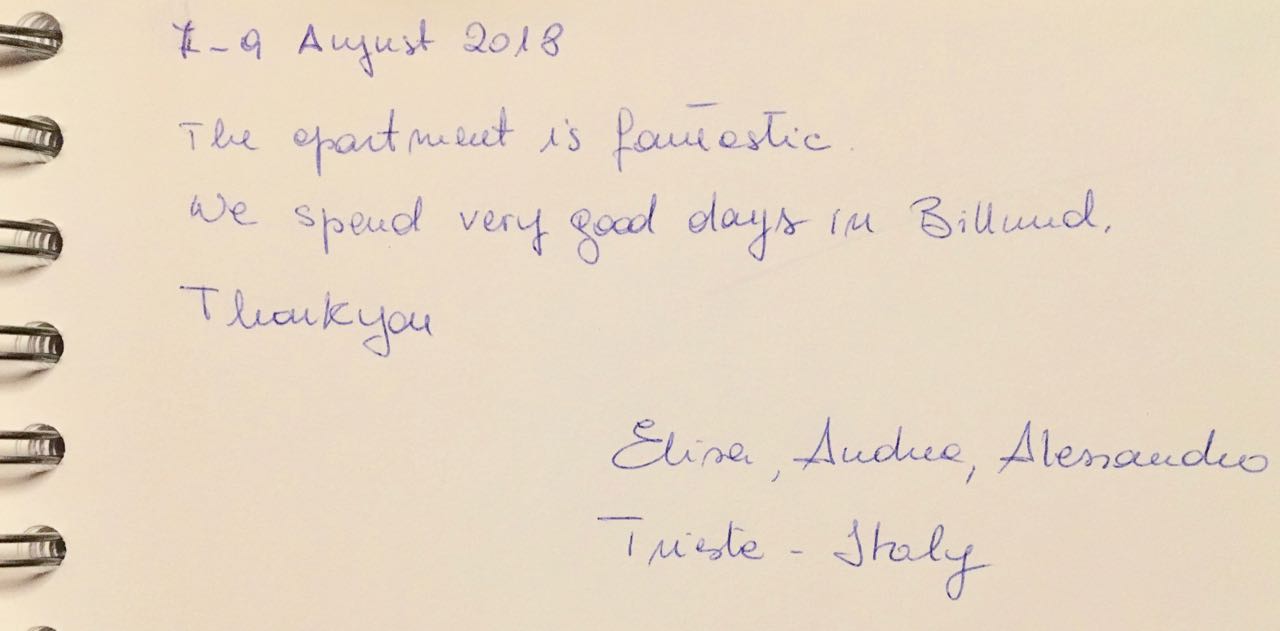 7-9 August 2018
The apartment is fantastic.
We spend very good days in Billund.
Thankyou
Elisa, Andrea, Alessandro
Trieste - Italy